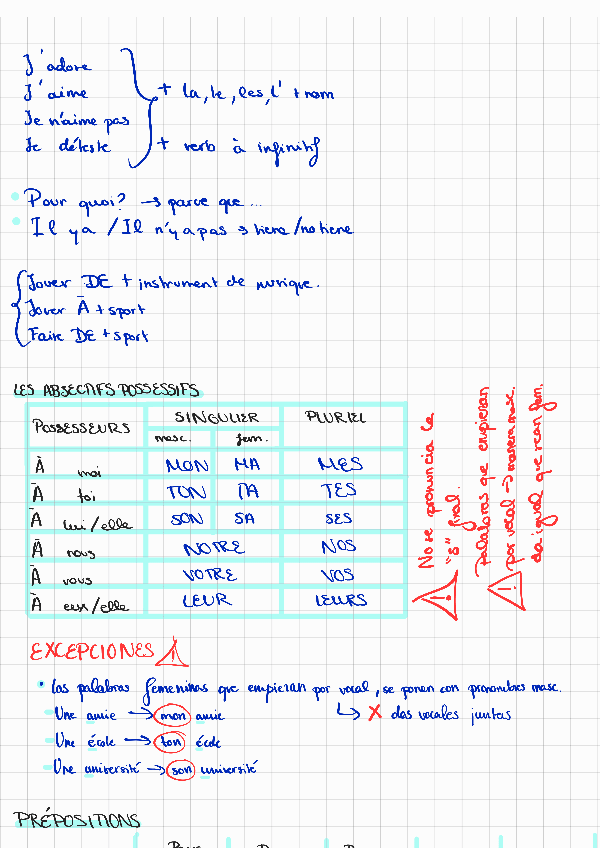 J'adore
J'aime
Je n'aime pas
Je déteste
+ la, le, les, l' + nom
+ verb à infinitif
• Pour quoi? → parce que ...
• Il y a / Il n'y a pas → tiene / no tiene
Jouer DE + instrument de musique.
Jouer À + sport
Faire DE + sport
LES ADJECTIFS POSSESSIFS
POSSESSEURS SINGULIER PLURIEL
masc. fem.
À moi MON MA MES
À toi TON TA TES
À lui/elle SON SA SES
À nous NOTRE NOS
À vous VOTRE VOS
À eux/elle LEUR LEURS
No se pronuncia la
"s" final.
Palabras que empiezan
por vocal → manera masc.
da igual que sean fem.
EXCEPCIONES
• Las palabras femeninas que empiezan por vocal, se ponen con pronombres masc.
↳ X dos vocales juntas
Une amie → mon amie
Une école → ton école
Une université → son université
PRÉPOSITIONS